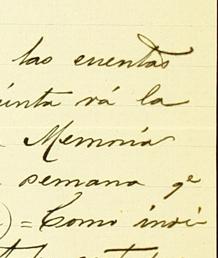 las cuentas
inta vá la
Memoria
semana qe
) = Como indi